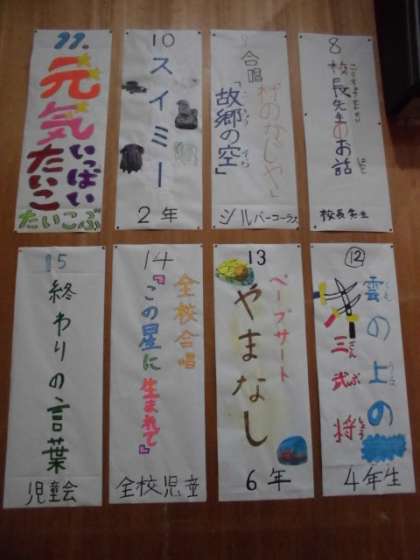 8
校長先生のお話
校長先生
9
合唱
村のかじや」
「故郷の空」
シルバーコーラス
10
スイミー
2年
11.
元気いっぱい
たいこ
たいこぶ
⑫
雲の上の
三武将
4年生
13
ペープサート
やまなし
6年
14
全校合唱
『この星に生まれて』
全校児童
15
終わりの言葉
児童会